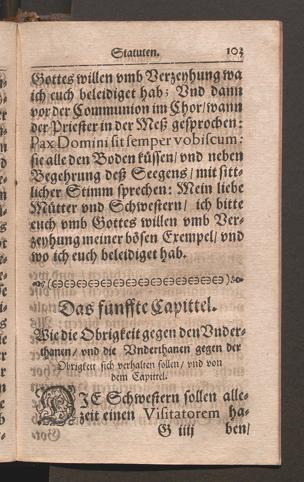 Statuten. 103
Gottes willen vmb Verzeyhung wa
ich euch beleidiget hab: Vnd dann
vor der Communion im Chor/ wann
der Priester in der Meß gesprochen:
Pax Domini sit semper vobiscum:
sie alle den Boden küssen/ vnd neben
Begehrung deß Seegens/ mit sitt-
licher Stimm sprechen: Mein liebe
Mütter vnd Schwestern/ ich bitte
euch vmb Gottes willen vmb Ver-
zeyhung meiner bösen Exempel/ vnd
wo ich euch beleidiget hab.
Das fünffte Capittel.
Wie die Obrigkeit gegen den Vnder-
thanen/ vnd die Vnderthanen gegen der
Obrigkeit sich verhalten sollen/ vnd von
dem Capittel.
DIE Schwestern sollen alle-
zeit einen Visitatorem ha-
G iiij ben/